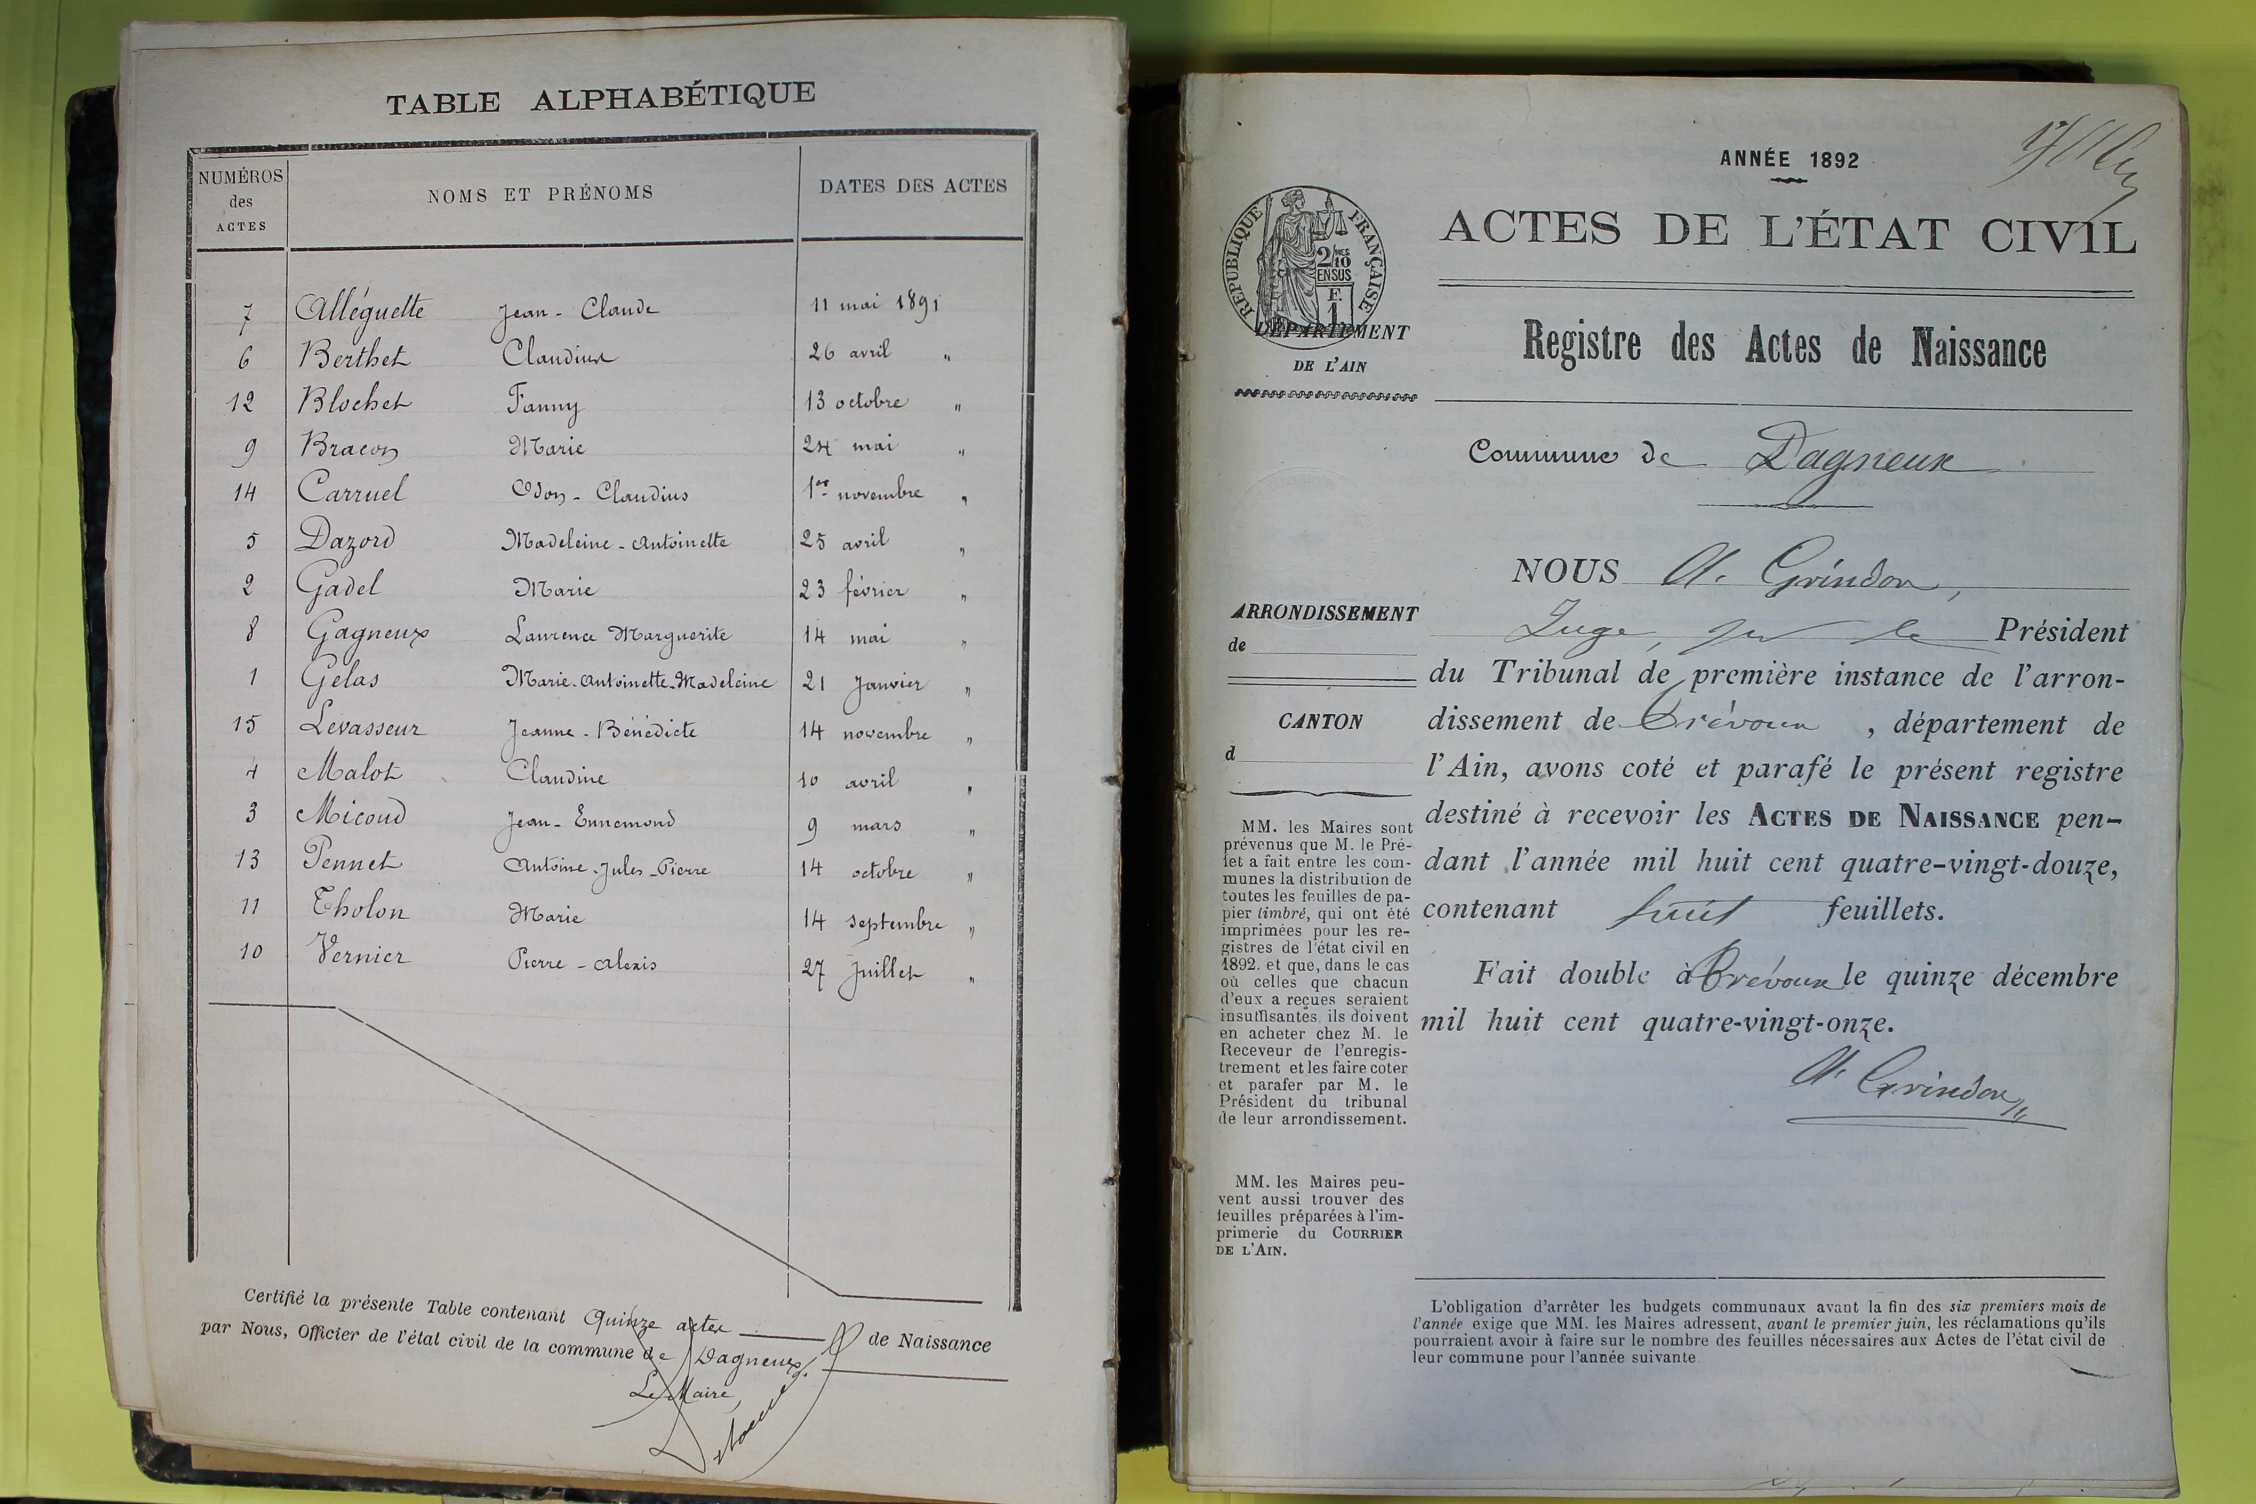 TABLE ALPHABÉTIQUE
NUMÉROS des ACTES NOMS ET PRÉNOMS DATES DES ACTES
7 Alléguette Jean - Claude 11 mai 1891
6 Berthet Claudius 26 avril "
12 Blochet Fanny 13 octobre "
9 Bracon Marie 24 mai "
14 Carruel Odon - Claudius 1er novembre "
5 Dazord Madeleine - Antoinette 25 avril "
2 Gadel Marie 23 février "
8 Gagneux Laurence Marguerite 14 mai "
1 Gelas Marie-Antoinette-Madeleine 21 Janvier "
15 Levasseur Jeanne - Bénédicte 14 novembre "
4 Malot Claudine 10 avril "
3 Micoud Jean - Ennemond 9 mars "
13 Pennet Antoine-Jules-Pierre 14 octobre "
11 Tholon Marie 14 septembre "
10 Vernier Pierre - Alexis 27 Juillet "
Certifié la présente Table contenant Quinze actes de Naissance
par Nous, Officier de l'état civil de la commune de Dagneux.
Le Maire,
ANNÉE 1892
RÉPUBLIQUE FRANÇAISE
2/10 EN SUS
F. 1
ACTES DE L'ÉTAT CIVIL
DÉPARTEMENT
DE L'AIN
Registre des Actes de Naissance
Commune de Dagneux
ARRONDISSEMENT
de
CANTON
d
MM. les Maires sont
prévenus que M. le Pré-
fet a fait entre les com-
munes la distribution de
toutes les feuilles de pa-
pier timbré, qui ont été
imprimées pour les re-
gistres de l'état civil en
1892. et que, dans le cas
où celles que chacun
d'eux a reçues seraient
insuffisantes, ils doivent
en acheter chez M. le
Receveur de l'enregis-
trement et les faire coter
et parafer par M. le
Président du tribunal
de leur arrondissement.
MM. les Maires peu-
vent aussi trouver des
feuilles préparées à l'im-
primerie du COURRIER
DE L'AIN.
NOUS A. Grindon,
Juge, pr le Président
du Tribunal de première instance de l'arron-
dissement de Trévoux, département de
l'Ain, avons coté et parafé le présent registre
destiné à recevoir les ACTES DE NAISSANCE pen-
dant l'année mil huit cent quatre-vingt-douze,
contenant huit feuillets.
Fait double à Trévoux le quinze décembre
mil huit cent quatre-vingt-onze.
A. Grindon
L'obligation d'arrêter les budgets communaux avant la fin des six premiers mois de
l'année exige que MM. les Maires adressent, avant le premier juin, les réclamations qu'ils
pourraient avoir à faire sur le nombre des feuilles nécessaires aux Actes de l'état civil de
leur commune pour l'année suivante